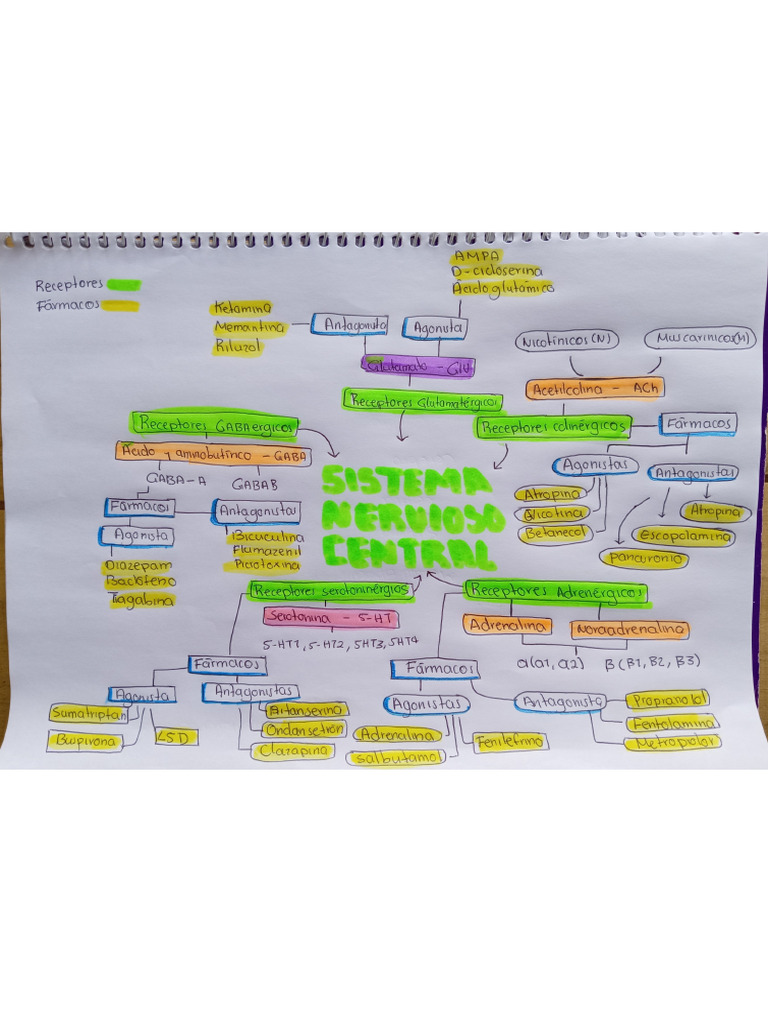 Receptores
Fármacos
AMPA
D-cicloserina
Ácido glutámico
Ketamina
Memantina
Riluzol
Antagonista
Agonista
Glutamato - GLU
Receptores Glutamatérgicos
Nicotínicos (N)
Muscarínicos (M)
Acetilcolina - ACh
Receptores colinérgicos
Fármacos
Agonistas
Antagonistas
Atropina
Nicotina
Betanecol
Atropina
escopolamina
pancuronio
Receptores GABAergicos
Ácido γ aminobutírico - GABA
GABA-A
GABAB
Fármacos
Agonista
Antagonistas
Diazepam
Baclofeno
Tiagabina
Bicuculina
Flumazenil
Picrotoxina
SISTEMA
NERVIOSO
CENTRAL
Receptores serotoninérgios
Serotonina - 5-HT
5-HT1, 5-HT2, 5HT3, 5HT4
Fármacos
Agonista
Antagonistas
Sumatriptan
Buspirona
LSD
Ritanserina
Ondansetrón
Clozapina
Receptores Adrenérgicos
Adrenalina
Noradrenalina
α(α1, α2)
β(β1, β2, β3)
Fármacos
Agonistas
Antagonista
Adrenalina
salbutamol
Fenilefrino
Propranolol
Fentolamina
Metropolor